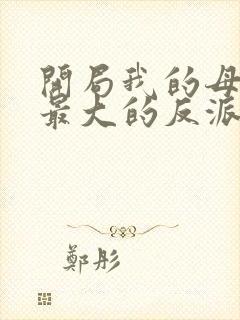 開局我的母
最大的反派
鄭彤